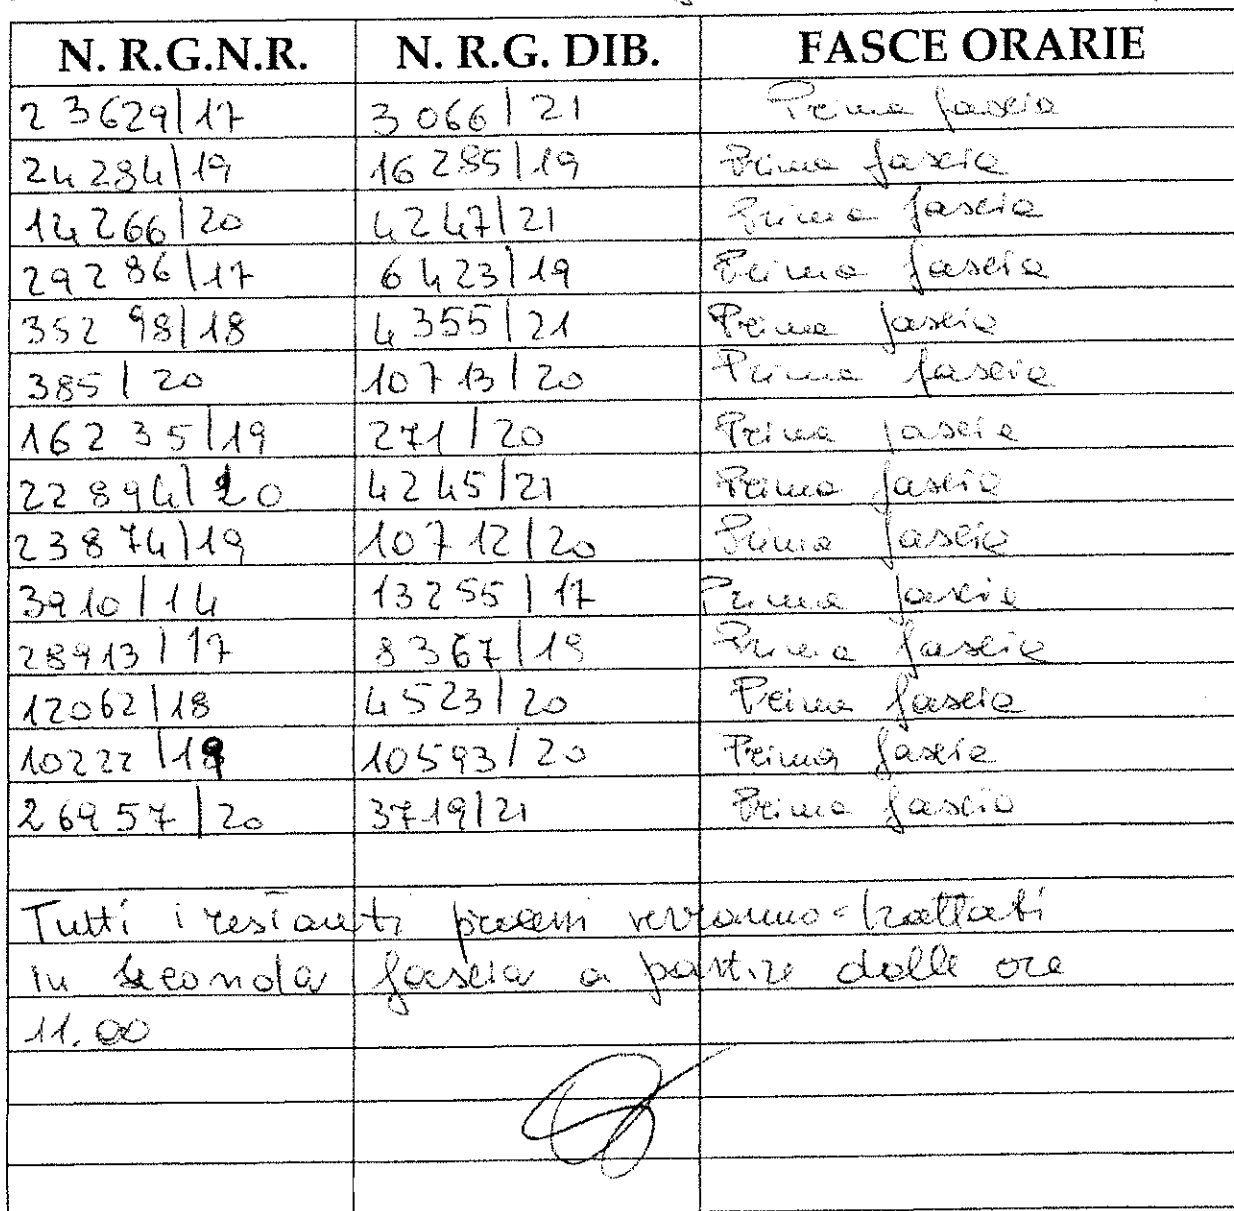 N. R.G.N.R. N. R.G. DIB. FASCE ORARIE
23629/17 3066/21 Prima fascia
24284/19 16285/19 Prima fascia
14266/20 4247/21 Prima fascia
29286/17 6423/19 Prima fascia
35298/18 4355/21 Prima fascia
385/20 10713/20 Prima fascia
16235/19 271/20 Prima fascia
22894/20 4245/21 Prima fascia
23874/19 10712/20 Prima fascia
3910/14 13255/17 Prima fascia
28913/17 8367/19 Prima fascia
12062/18 4523/20 Prima fascia
10222/19 10593/20 Prima fascia
26957/20 3719/21 Prima fascia
Tutti i restanti processi verranno trattati
in seconda fascia a partire dalle ore
11.00